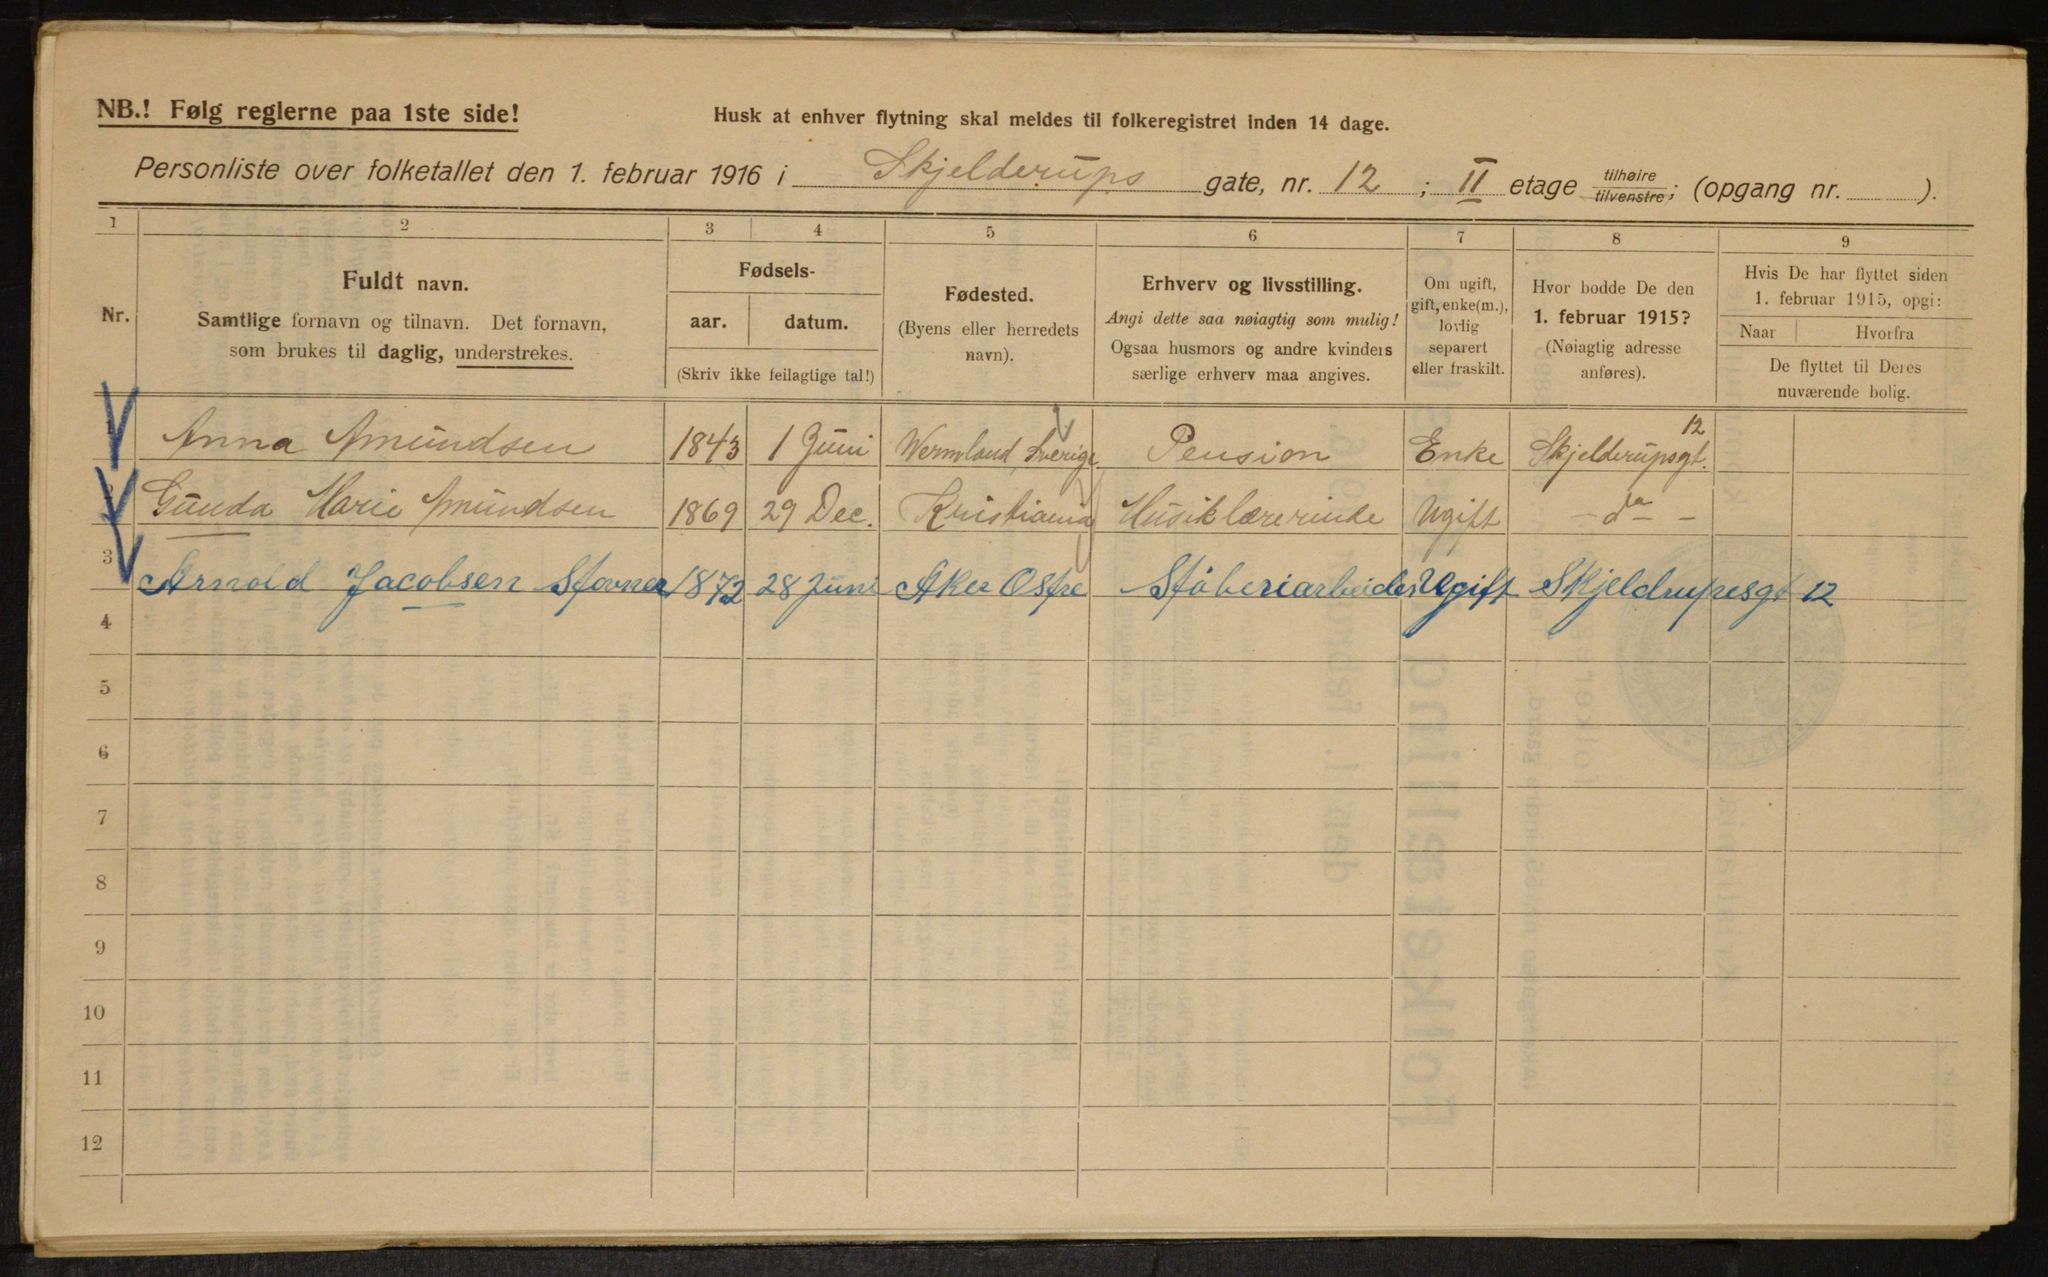 NB.! Følg reglerne paa 1ste side!
Husk at enhver flytning skal meldes til folkeregistret inden 14 dage.
Personliste over folketallet den 1. februar 1916 i Skjelderups gate, nr. 12 ; II etage tilhøire tilvenstre; (opgang nr. ).
1 2 3 4 5 6 7 8 9
Nr.
Fuldt navn.
Samtlige fornavn og tilnavn. Det fornavn,
som brukes til daglig, understrekes.
Fødsels-
aar. datum.
(Skriv ikke feilagtige tal!)
Fødested.
(Byens eller herredets
navn).
Erhverv og livsstilling.
Angi dette saa nøiagtig som mulig!
Ogsaa husmors og andre kvinders
særlige erhverv maa angives.
Om ugift,
gift, enke(m.),
lovlig
separert
eller fraskilt.
Hvor bodde De den
1. februar 1915?
(Nøiagtig adresse
anføres).
Hvis De har flyttet siden
1. februar 1915, opgi:
Naar Hvorfra
De flyttet til Deres
nuværende bolig.
Anna Amundsen 1843 1 Juni Wermland, Sverige. Pension Enke Skjelderupsgt. 12
Gunda Marie Amundsen 1869 29 Dec. Kristiania Musiklærerinde Ugift - do - -
3 Arnold Jacobsen Stovner 1872 28 Juni Aker Ostre Stöberiarbeider Ugift Skjeldrupesgt 12
4
5
6
7
8
9
10
11
12